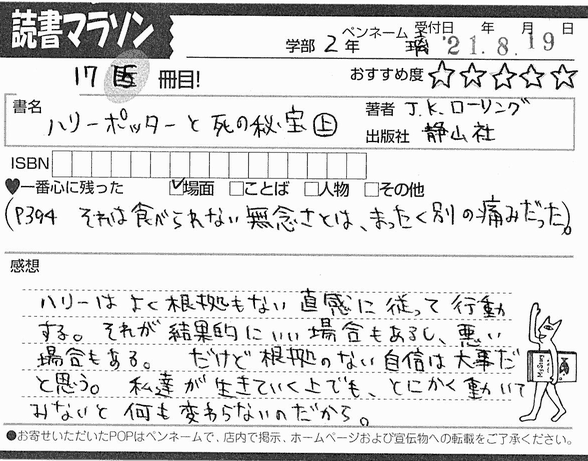 読書マラソン
学部 2年 ペンネーム 璃 受付日 年 月 日
'21.8.19
17 冊目! おすすめ度 ☆☆☆☆☆
書名 ハリーポッターと死の秘宝㊤
著者 J.K.ローリング
出版社 静山社
ISBN
♥一番心に残った ☑場面 □ことば □人物 □その他
(P394 それは食べられない無念さとは、まったく別の痛みだった。)
感想
ハリーはよく根拠もない直感に従って行動
する。それが結果的にいい場合もあるし、悪い
場合もある。 だけど根拠のない自信は大事だ
と思う。 私達が生きていく上でも、とにかく動いて
みないと何も変わらないのだから。
●お寄せいただいたPOPはペンネームで、店内で掲示、ホームページおよび宣伝物への転載をご了承ください。